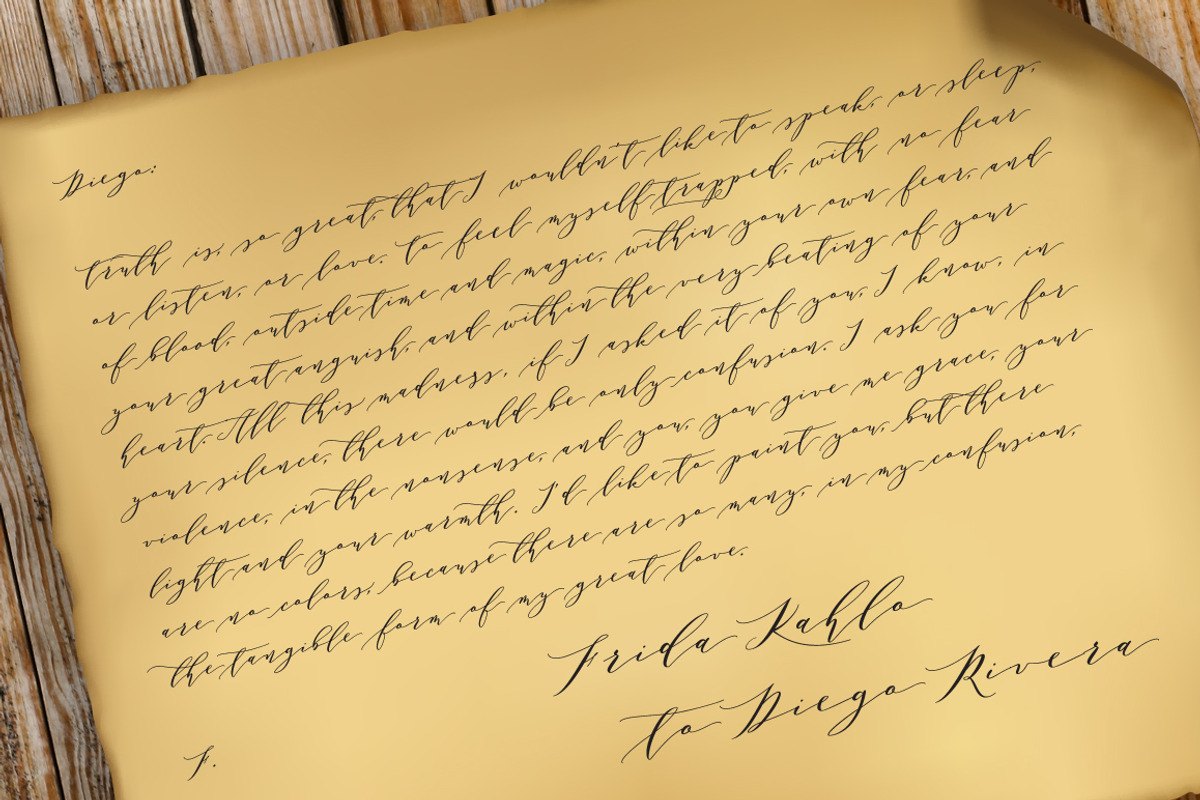 Diego:
truth is, so great, that I wouldn't like to speak, or sleep,
or listen, or love. to feel myself trapped, with no fear
of blood, outside time and magic, within your own fear, and
your great anguish, and within the very beating of your
heart. All this madness, if I asked it of you, I know, in
your silence, there would be only confusion. I ask you for
violence, in the nonsense, and you, you give me grace, your
light and your warmth. I'd like to paint you, but there
are no colors, because there are so many, in my confusion,
the tangible form of my great love.
Frida Kahlo
to Diego Rivera
F.